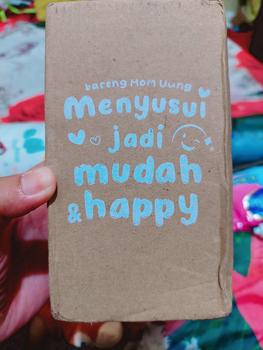 bareng Mom Uung
Menyusui
jadi
mudah
& happy